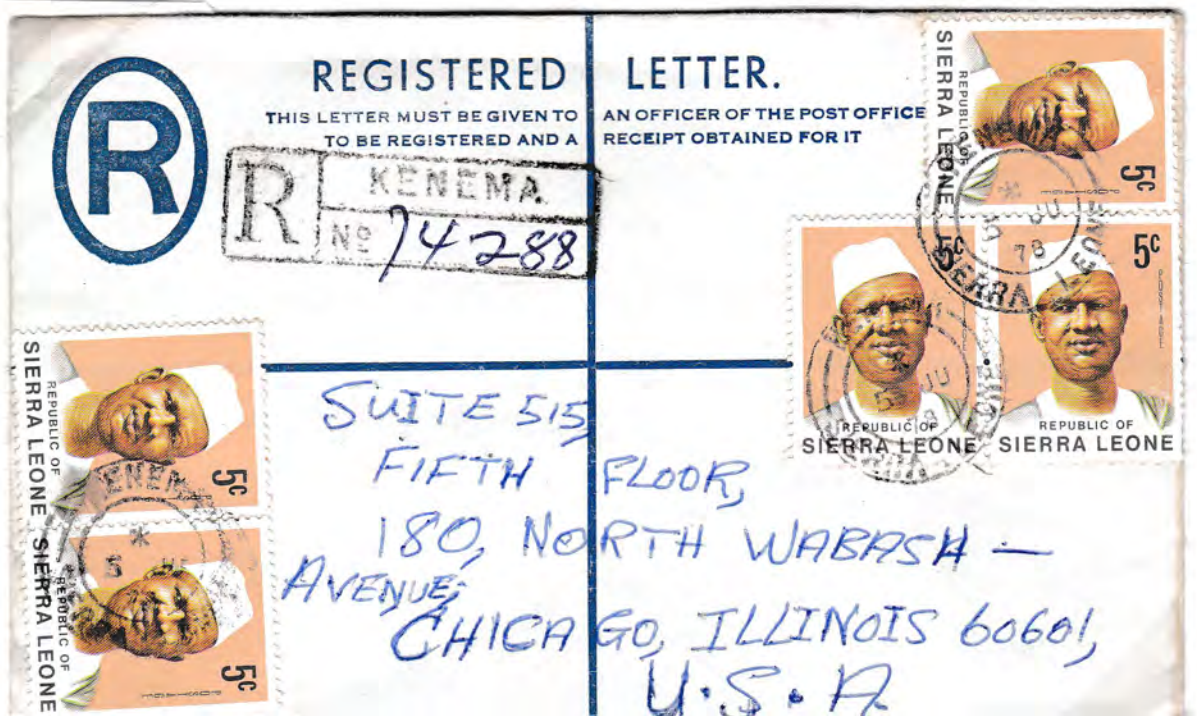 REGISTERED LETTER.
THIS LETTER MUST BE GIVEN TO AN OFFICER OF THE POST OFFICE
TO BE REGISTERED AND A RECEIPT OBTAINED FOR IT
R
R KENEMA.
Nº 74288
5c
REPUBLIC OF
SIERRA LEONE
5c
REPUBLIC OF
SIERRA LEONE
5c
REPUBLIC OF
SIERRA LEONE
SIERRA LEONE
78
5 JU
SIERRA LEONE
REPUBLIC OF
5c
SIERRA LEONE
REPUBLIC OF
5c
KENEMA
5
SUITE 515,
FIFTH FLOOR,
180, NORTH WABASH —
AVENUE,
CHICAGO, ILLINOIS 60601,
U.S.A.